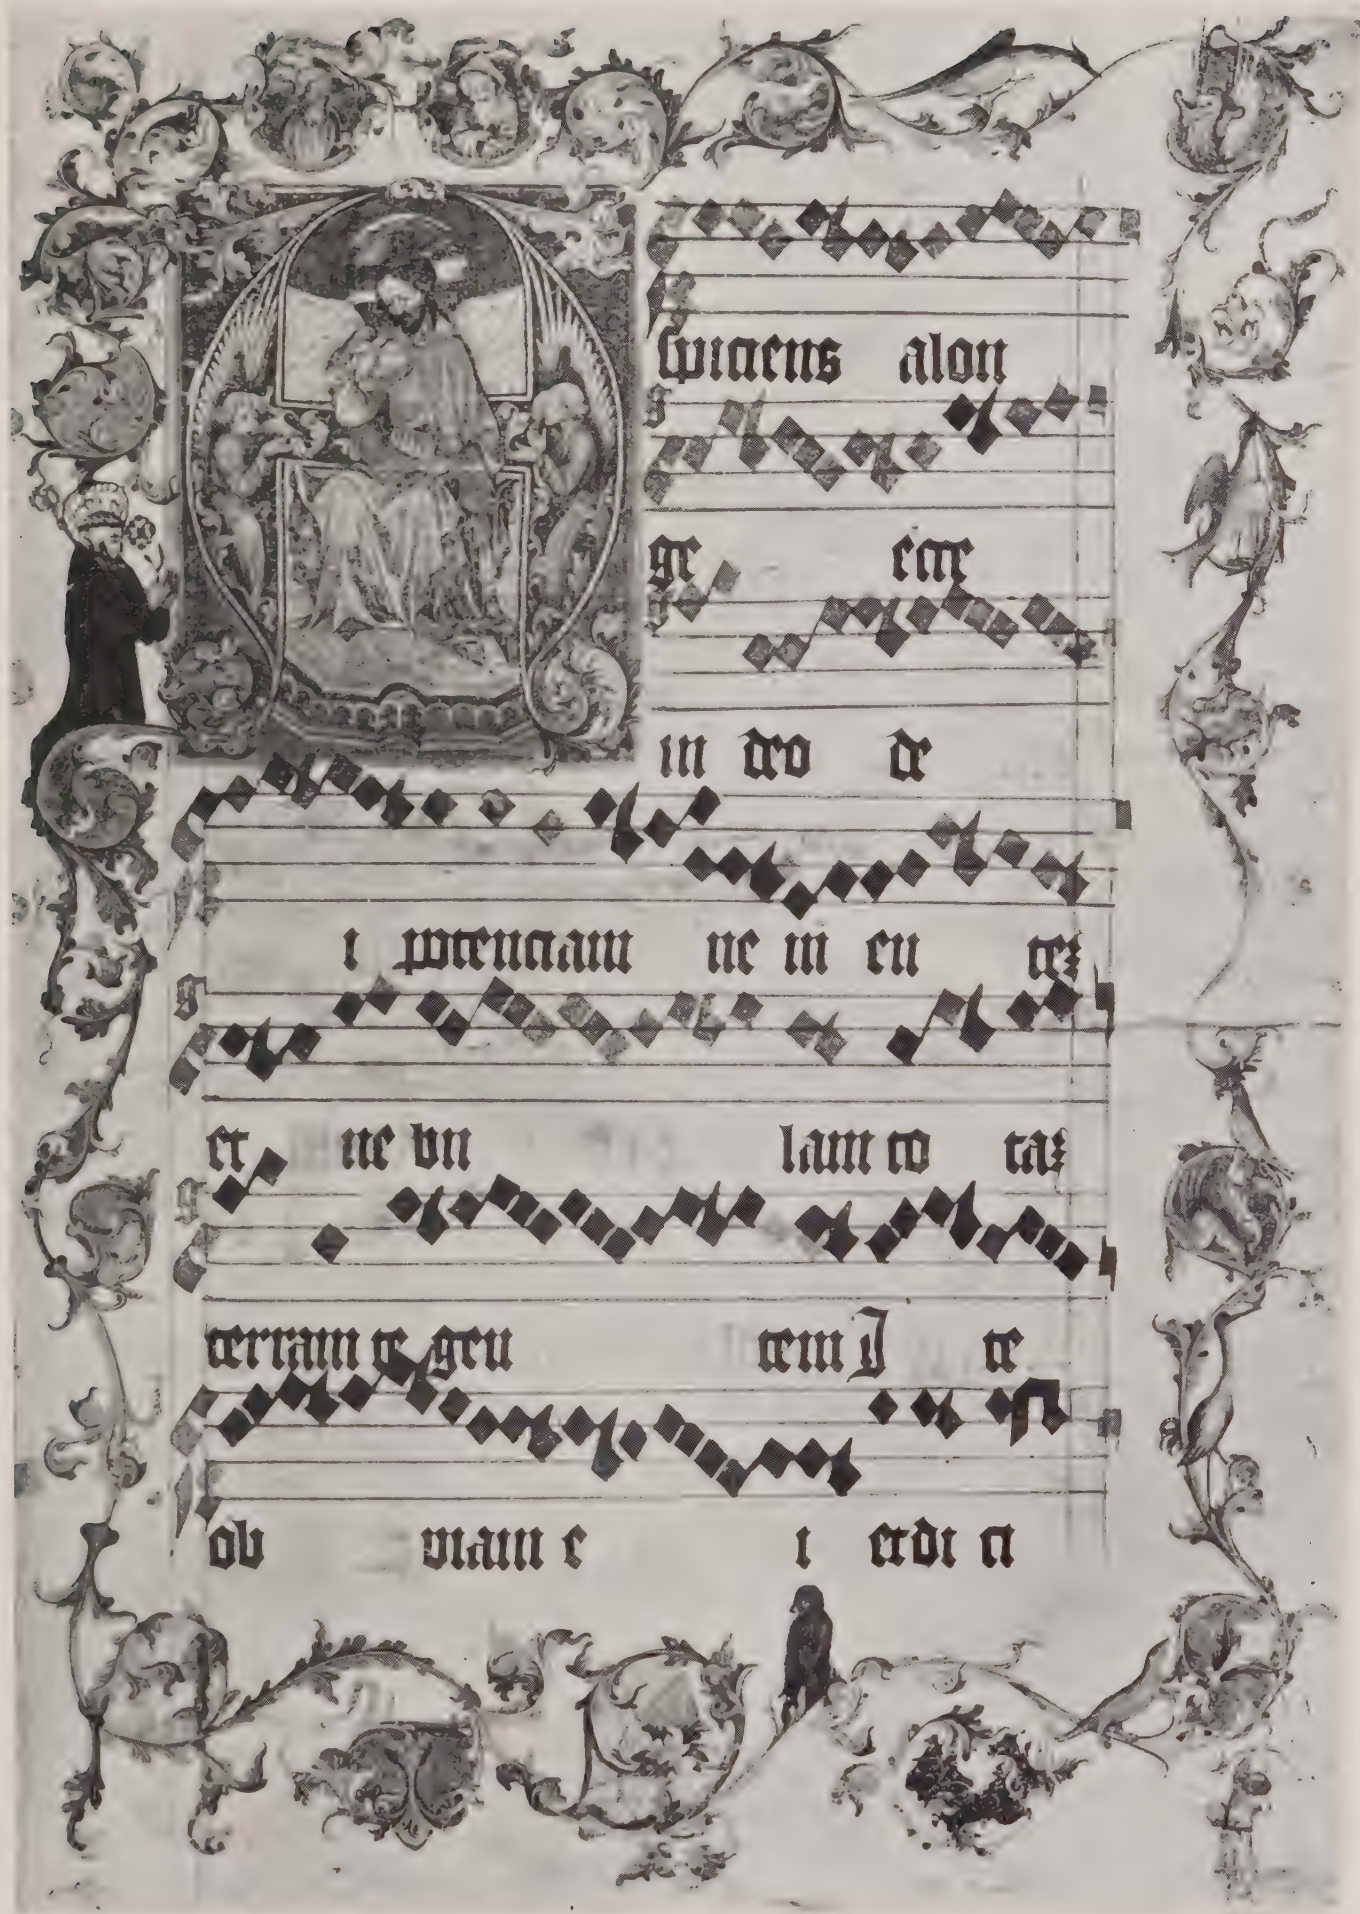 A
spiciens alon
ge ecce
in deo de
i potenciam ne in en tez
et ne bu lam to taz
terram te gen tem I te
ob viam e i et di ci